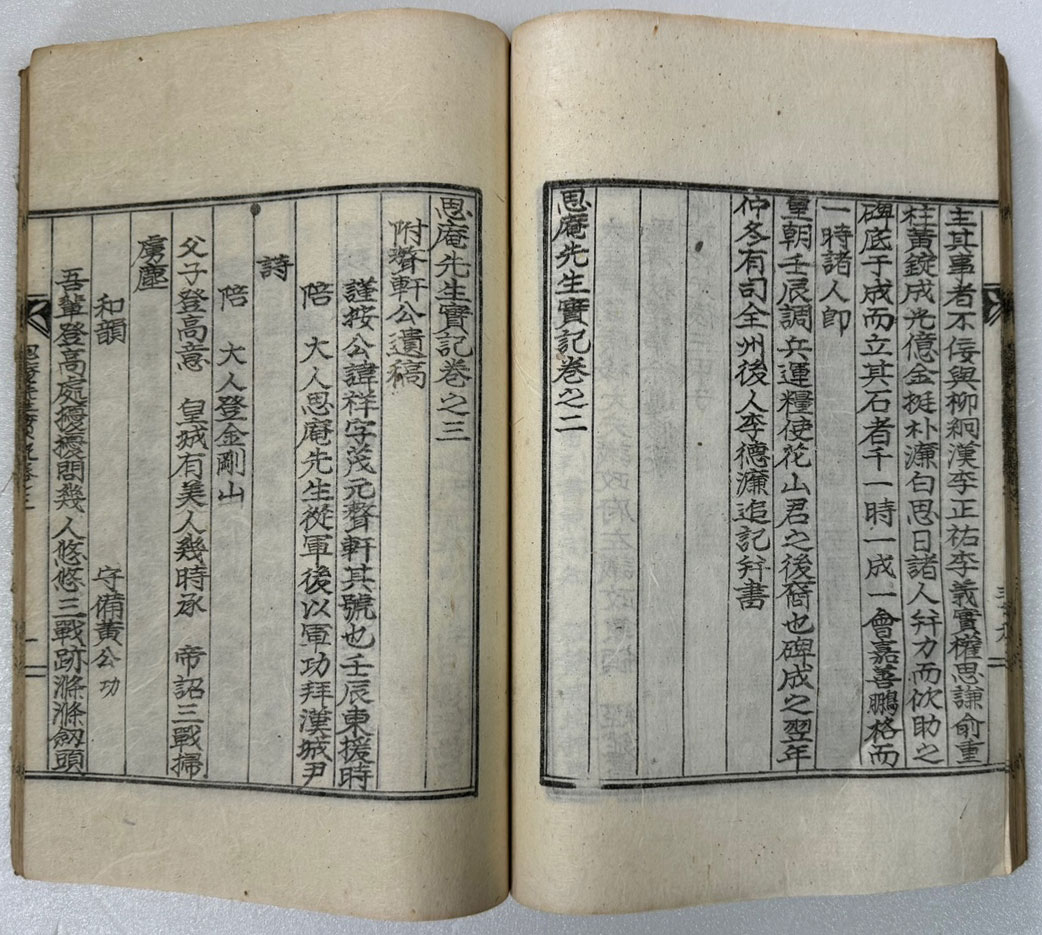 主其事者不佞與柳綗漢李正祐李義實權思謙俞重
柱黃錠成光億金挺朴濂白思日諸人幷力而佽助之
碑底于成而立其石者千一時一成一會嘉善鵬格而
一時諸人卽
皇朝壬辰調兵運糧使花山君之後裔也碑成之翌年
仲冬有司全州後人李德濂追記幷書
思庵先生實記卷之二
思庵先生實記卷之三
附聱軒公遺稿
謹按公諱祥字茂元聱軒其號也壬辰東援時
陪 大人思庵先生從軍後以軍功拜漢城尹
詩
陪 大人登金剛山
父子登高意 皇城有美人幾時承 帝詔三戰掃
虜塵
和韻 守備黃公功
吾輩登高處擾擾問幾人悠悠三戰跡滌滌劒頭